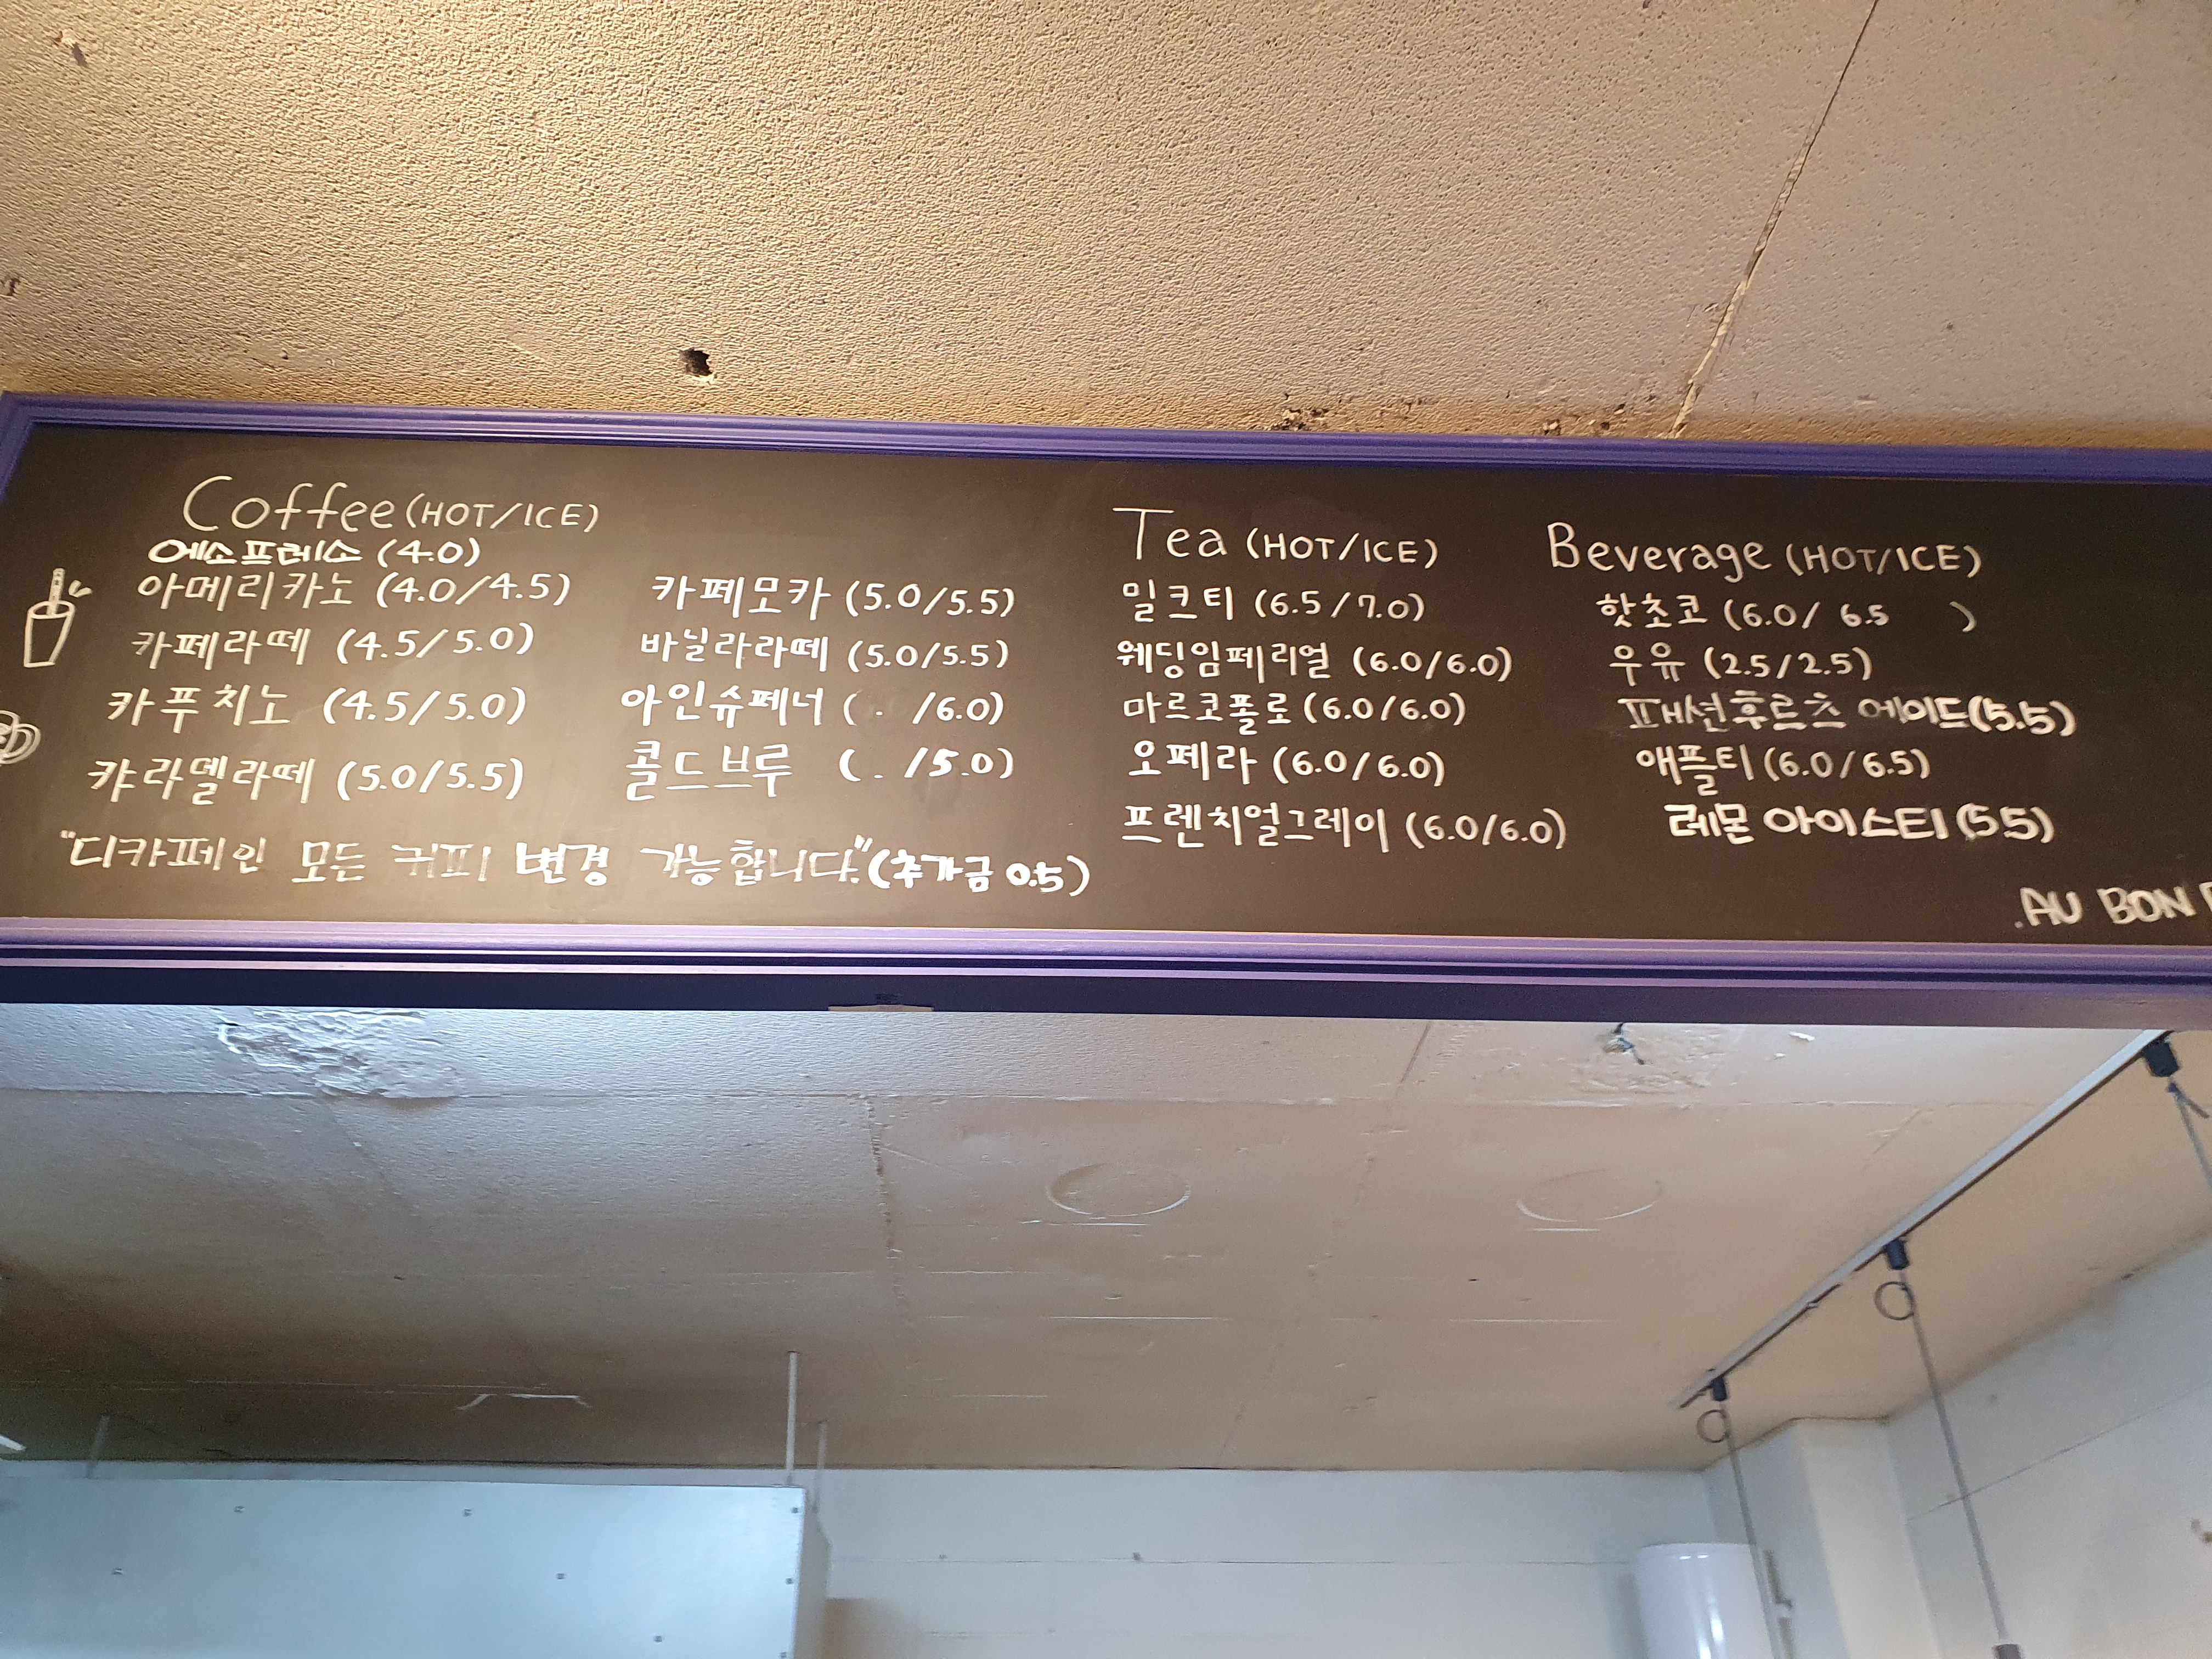 Coffee (HOT/ICE)
에소프레소 (4.0)
아메리카노 (4.0/4.5)
카페라떼 (4.5/5.0)
카푸치노 (4.5/5.0)
캬라멜라떼 (5.0/5.5)
카페모카 (5.0/5.5)
바닐라라떼 (5.0/5.5)
아인슈페너 ( . /6.0)
콜드브루 ( . /5.0)
"디카페인 모든 커피 변경 가능합니다." (추가금 0.5)
Tea (HOT/ICE)
밀크티 (6.5/7.0)
웨딩임페리얼 (6.0/6.0)
마르코폴로 (6.0/6.0)
오페라 (6.0/6.0)
프렌치얼그레이 (6.0/6.0)
Beverage (HOT/ICE)
핫초코 (6.0/ 6.5 )
우유 (2.5/2.5)
패션후르츠 에이드 (5.5)
애플티 (6.0/6.5)
레몬 아이스티 (5.5)
.AU BON